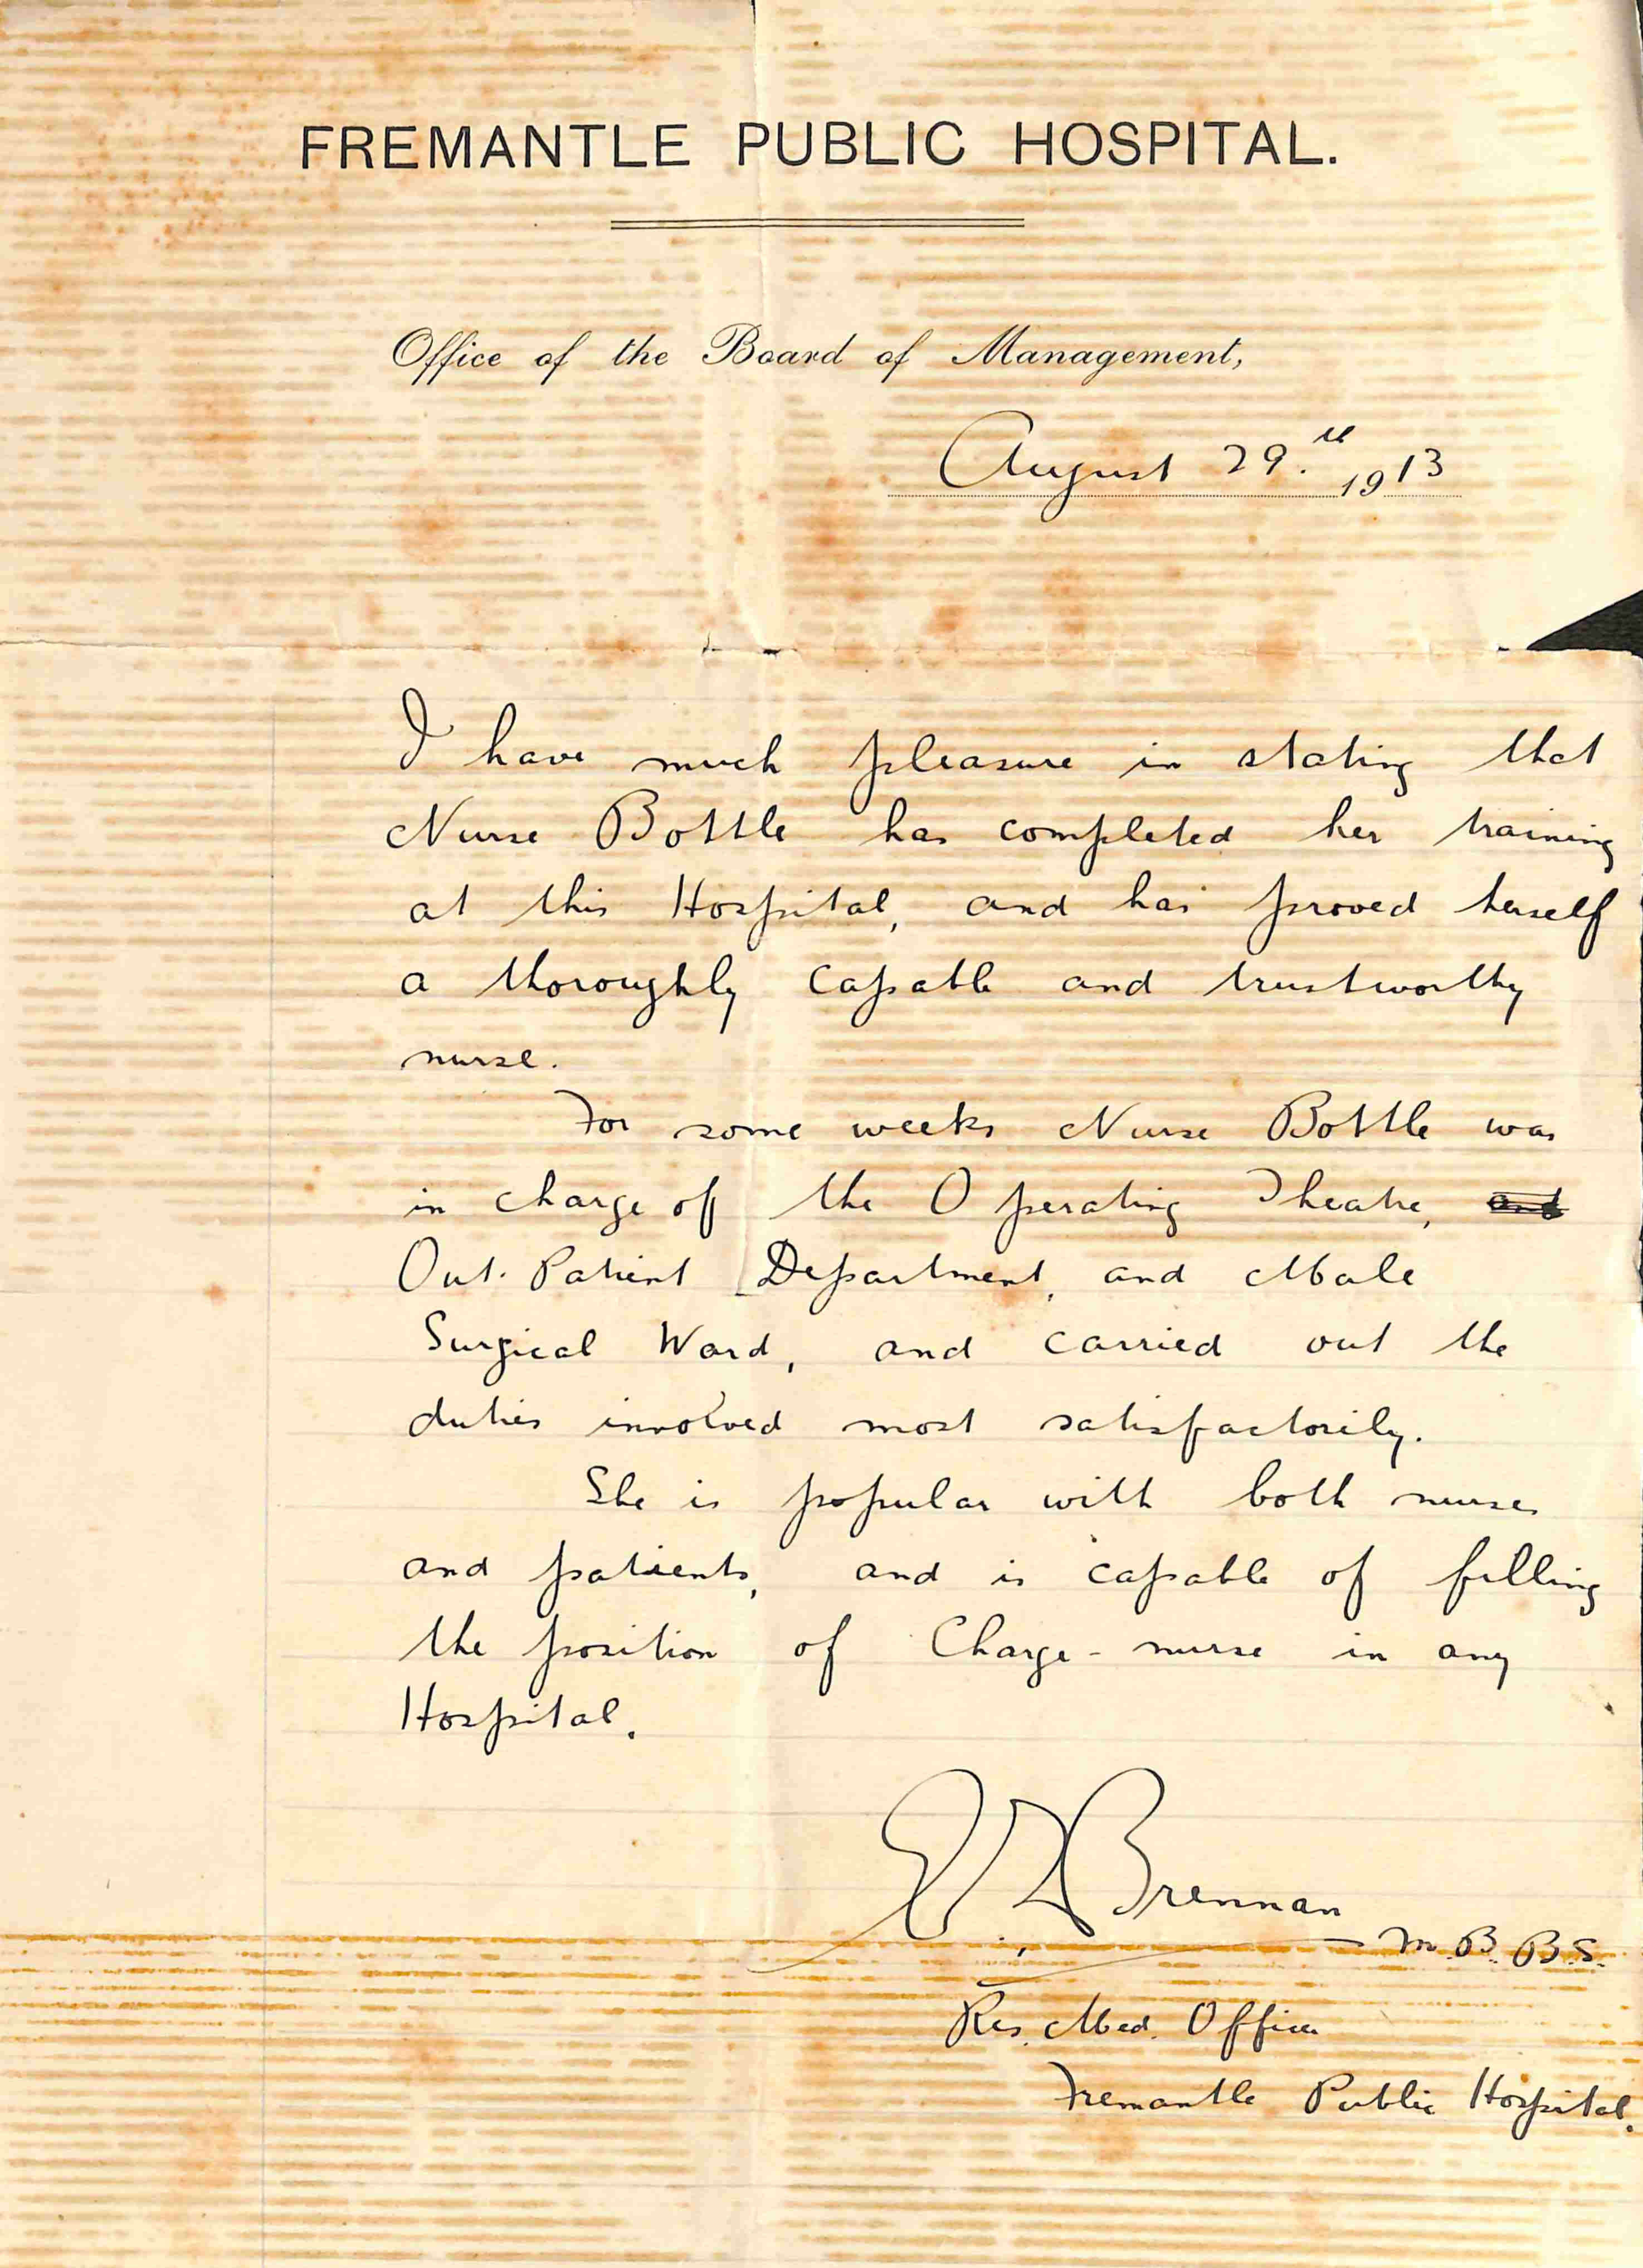 FREMANTLE PUBLIC HOSPITAL.
Office of the Board of Management,
August 29.th 1913
I have much pleasure in stating that
Nurse Bottle has completed her training
at this Hospital, and has proved herself
a thoroughly capable and trustworthy
nurse.
For some weeks Nurse Bottle was
in charge of the Operating Theatre, and
Out. Patient Department, and Male
Surgical Ward, and carried out the
duties involved most satisfactorily.
She is popular with both nurses
and patients, and is capable of filling
the position of Charge-nurse in any
Hospital.
Brennan
M.B. B.S.
Res. Med. Officer
Fremantle Public Hospital.